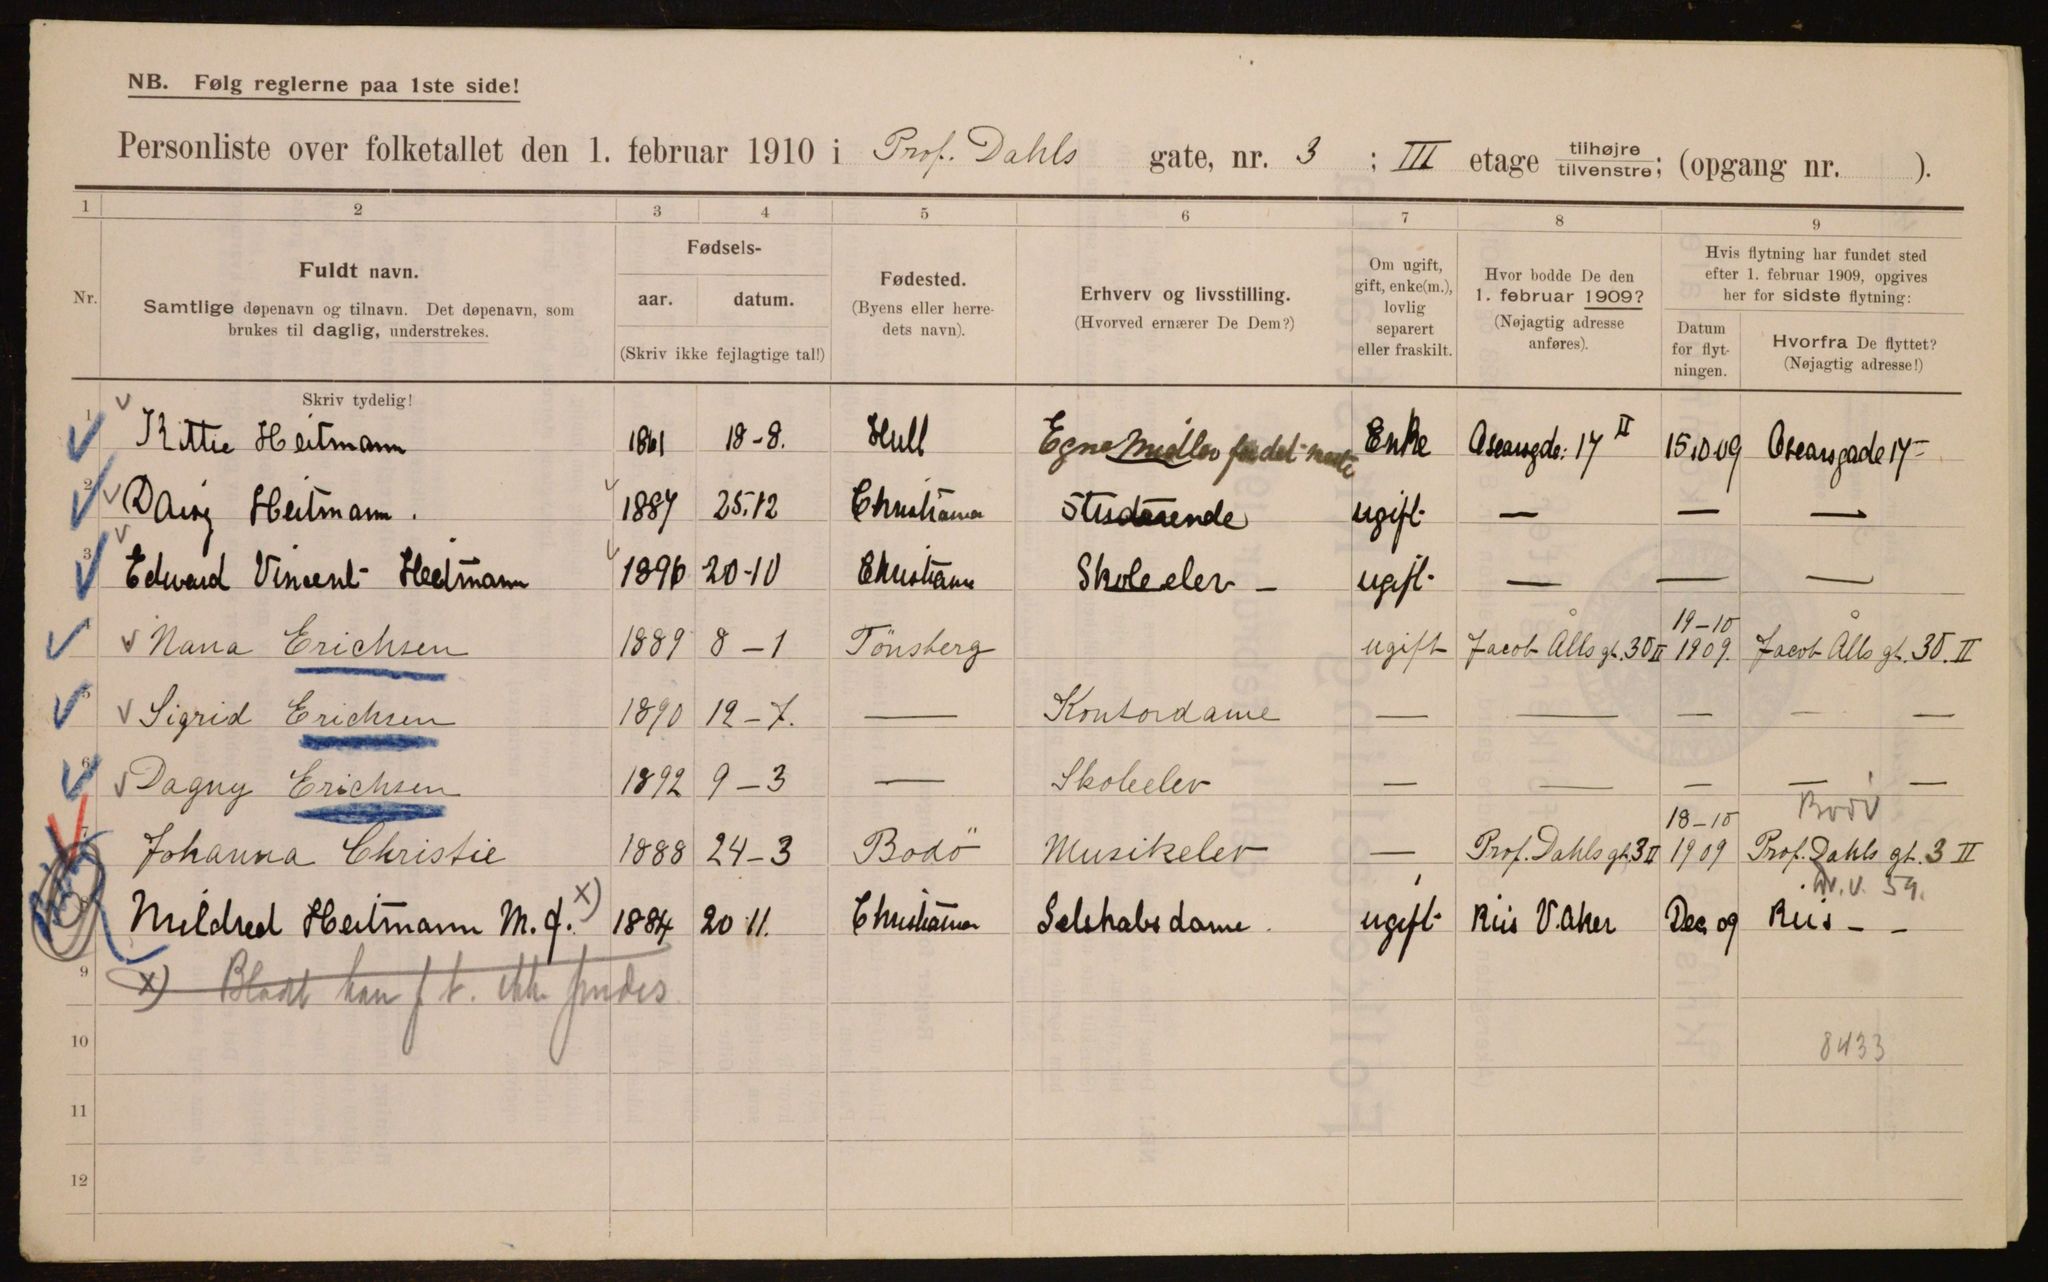 NB. Følg reglerne paa 1ste side!
Personliste over folketallet den 1. februar 1910 i Prof. Dahls gate, nr. 3 ; III etage tilhøjre/tilvenstre; (opgang nr. ).
1 2 3 4 5 6 7 8 9
Nr.
Fuldt navn.
Samtlige døpenavn og tilnavn. Det døpenavn, som
brukes til daglig, understrekes.
Skriv tydelig!
Fødsels-
aar. datum.
(Skriv ikke fejlagtige tal!)
Fødested.
(Byens eller herre-
dets navn).
Erhverv og livsstilling.
(Hvorved ernærer De Dem?)
Om ugift,
gift, enke(m.),
lovlig
separert
eller fraskilt.
Hvor bodde De den
1. februar 1909?
(Nøjagtig adresse
anføres).
Hvis flytning har fundet sted
efter 1. februar 1909, opgives
her for sidste flytning:
Datum
for flyt-
ningen.
Hvorfra De flyttet?
(Nøjagtig adresse!)
1 Kittie Heitmann 1861 18-8. Hull Egne Midler for det meste Enke Oscarsgde: 17 II 15.10.09 Oscarsgade 17 -
2 Daisy Heitmann. 1887 25.12 Christiania Studerende ugift — — —
3 Edward Vincent Heitmann 1896 20-10 Christiania Skoleelev — ugift — — —
4 Nana Erichsen 1889 8-1 Tönsberg ugift Jacob Ålls gt. 30 II 19-10 1909. Jacob Ålls gt. 30. II
5 Sigrid Erichsen 1890 12-7. — Kontordame — — — — —
6 Dagny Erichsen 1892 9-3 — Skoleelev — — — — —
Bodö
7 Johanna Christie 1888 24-3 Bodö Musikelev — Prof. Dahls gt. 3 II 18-10 1909 Prof. Dahls gt. 3 II
8 Mildred Heitmann M. f. x) 1884 20 11. Christiania Selskabsdame. ugift Riis V. Aker Dec. 09 Riis - -
9 x) Bladt kan f. t. ikke findes
10 8433
11
12